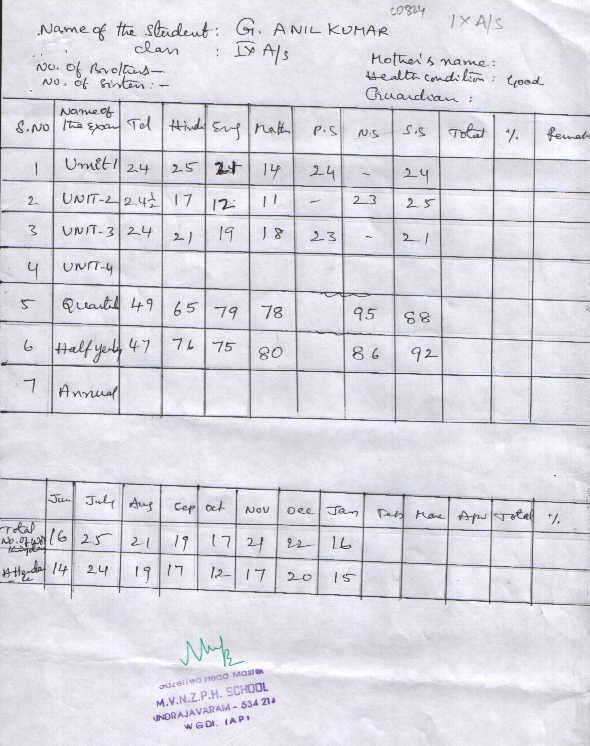 C0824
IX A/S
Name of the Student : G. ANIL KUMAR
class : IX A/S
No. of Brothers—
No. of Sisters : -
Mother's name :
Health condition : Good
Guardian :
S.No Name of the Exam Tel Hindi Eng Math P.S N.S S.S Total %. Remark
1 Unit 1 24 25 21 14 24 - 24
2 UNIT-2 24½ 17 12 11 - 23 25
3 UNIT-3 24 21 19 18 23 - 21
4 UNIT-4
5 49 65 79 78 95 88
6 Half yerly 47 76 75 80 86 92
7 Annual
Jun July Aug Sep Oct Nov Dec Jan Feb Mar Apr Total %.
Total No. of 16 25 21 19 17 21 22 16
14 24 19 17 12 17 20 15
Head Master
M.V.N.Z.P.H. SCHOOL
UNDRAJAVARAM - 534 216
W GDt. (AP)